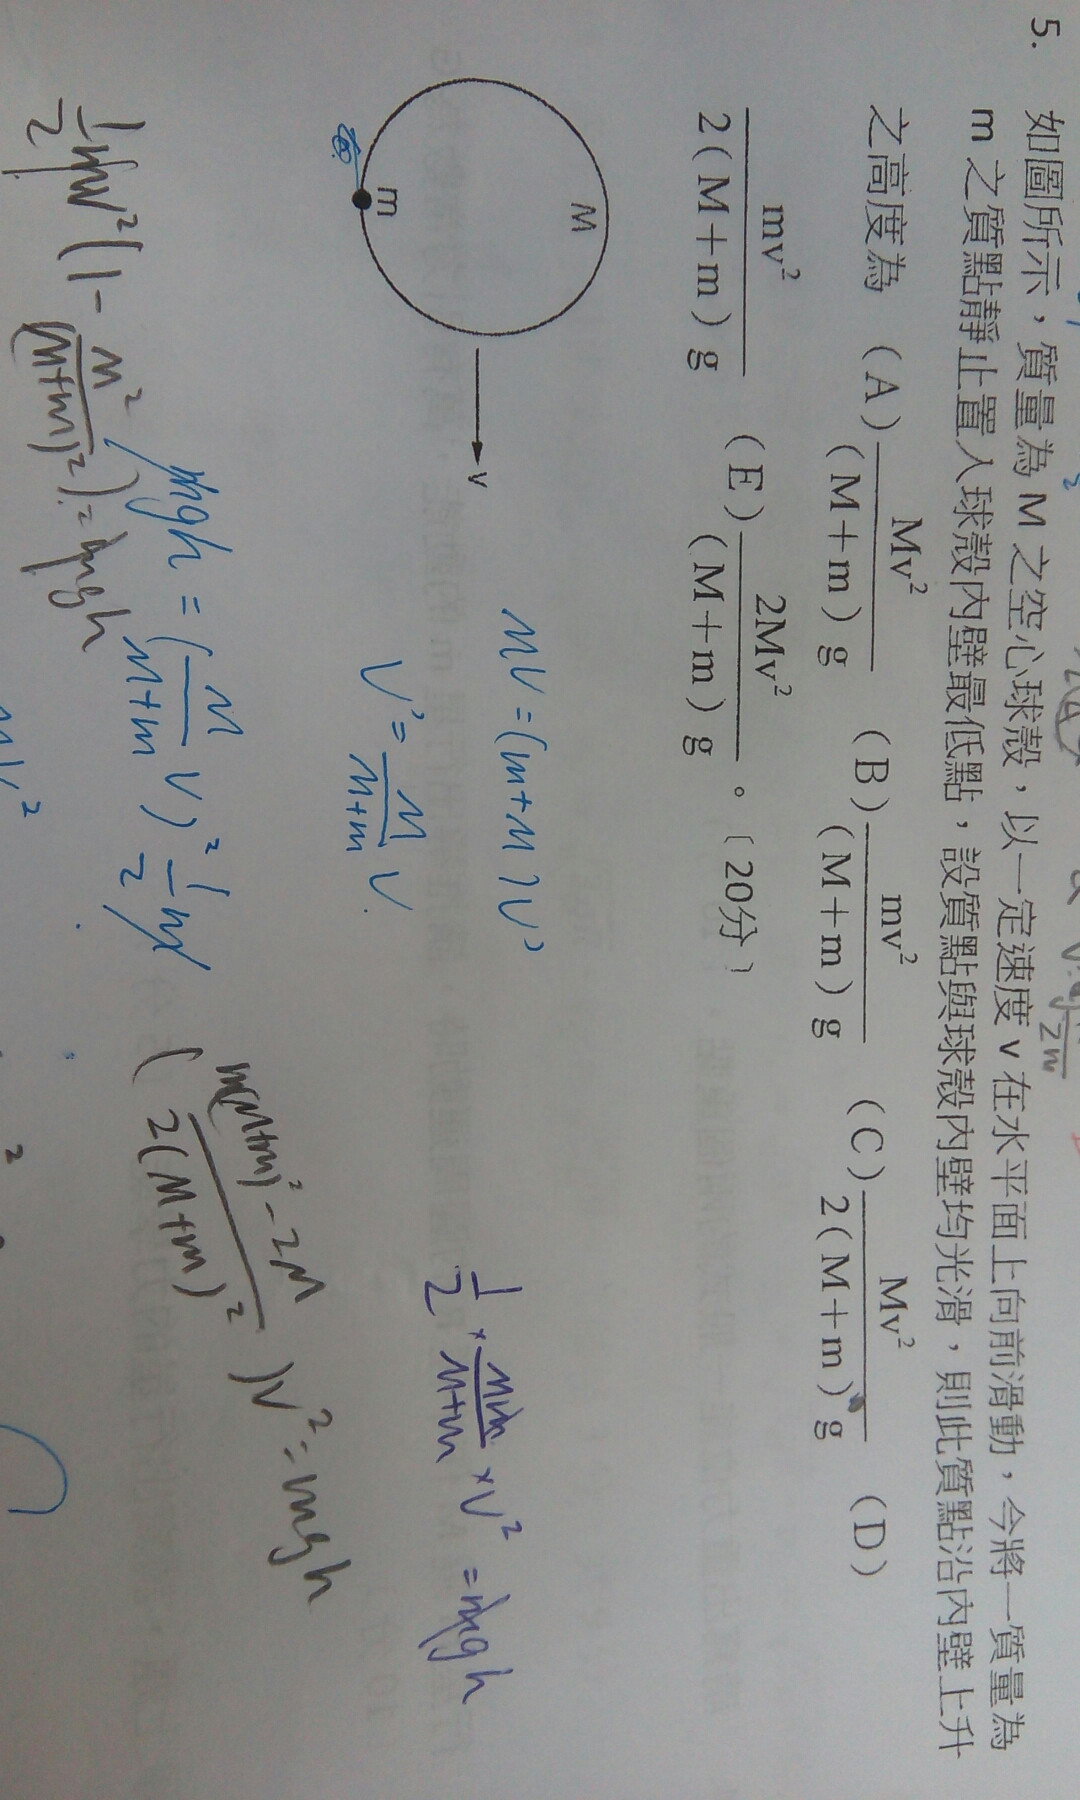 5. 如圖所示，質量為 M 之空心球殼，以一定速度 v 在水平面上向前滑動，今將一質量為
m 之質點靜止置入球殼內壁最低點，設質點與球殼內壁均光滑，則此質點沿內壁上升
之高度為 (A) Mv²/(M+m)g (B) mv²/(M+m)g (C) Mv²/2(M+m)g (D)
mv²/2(M+m)g (E) 2Mv²/(M+m)g 。〔20分〕
M
m
v
MV = (m+M)V'
V' = M/(M+m) V
1/2 × Mm/(M+m) × V² = mgh
mgh = (M/(M+m) V)² 1/2 m
1/2 MV² (1 - M²/(M+m)²) = mgh
V² = mgh